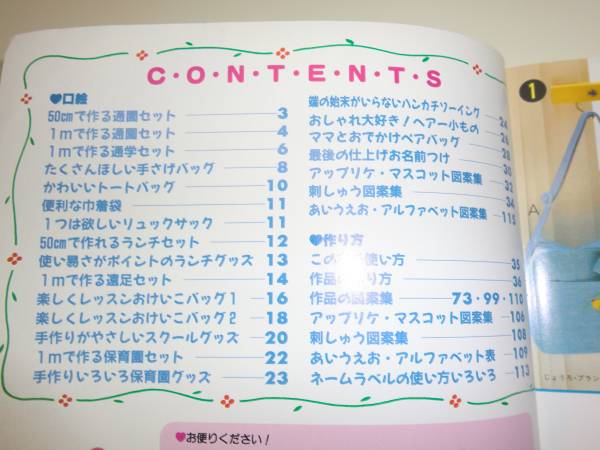 C・O・N・T・E・N・T・S
♥口絵
50cmで作る通園セット 3
1mで作る通園セット 4
1mで作る通学セット 6
たくさんほしい手さげバッグ 8
かわいいトートバッグ 10
便利な巾着袋 11
1つは欲しいリュックサック 11
50cmで作れるランチセット 12
使い易さがポイントのランチグッズ 13
1mで作る遠足セット 14
楽しくレッスンおけいこバッグ1 16
楽しくレッスンおけいこバッグ2 18
手作りがやさしいスクールグッズ 20
1mで作る保育園セット 22
手作りいろいろ保育園グッズ 23
端の始末がいらないハンカチソーイング 24
おしゃれ大好き!ヘアー小もの 26
ママとおでかけペアバッグ 28
最後の仕上げお名前つけ 30
アップリケ・マスコット図案集 32
刺しゅう図案集 34
あいうえお・アルファベット図案集 115
♥作り方
この 使い方 35
作品の作り方 36
作品の図案集 73・99・110
アップリケ・マスコット図案集 106
刺しゅう図案集 108
あいうえお・アルファベット表 109
ネームラベルの使い方いろいろ 113
♥お便りください!
1
A
じょうろ・プラン